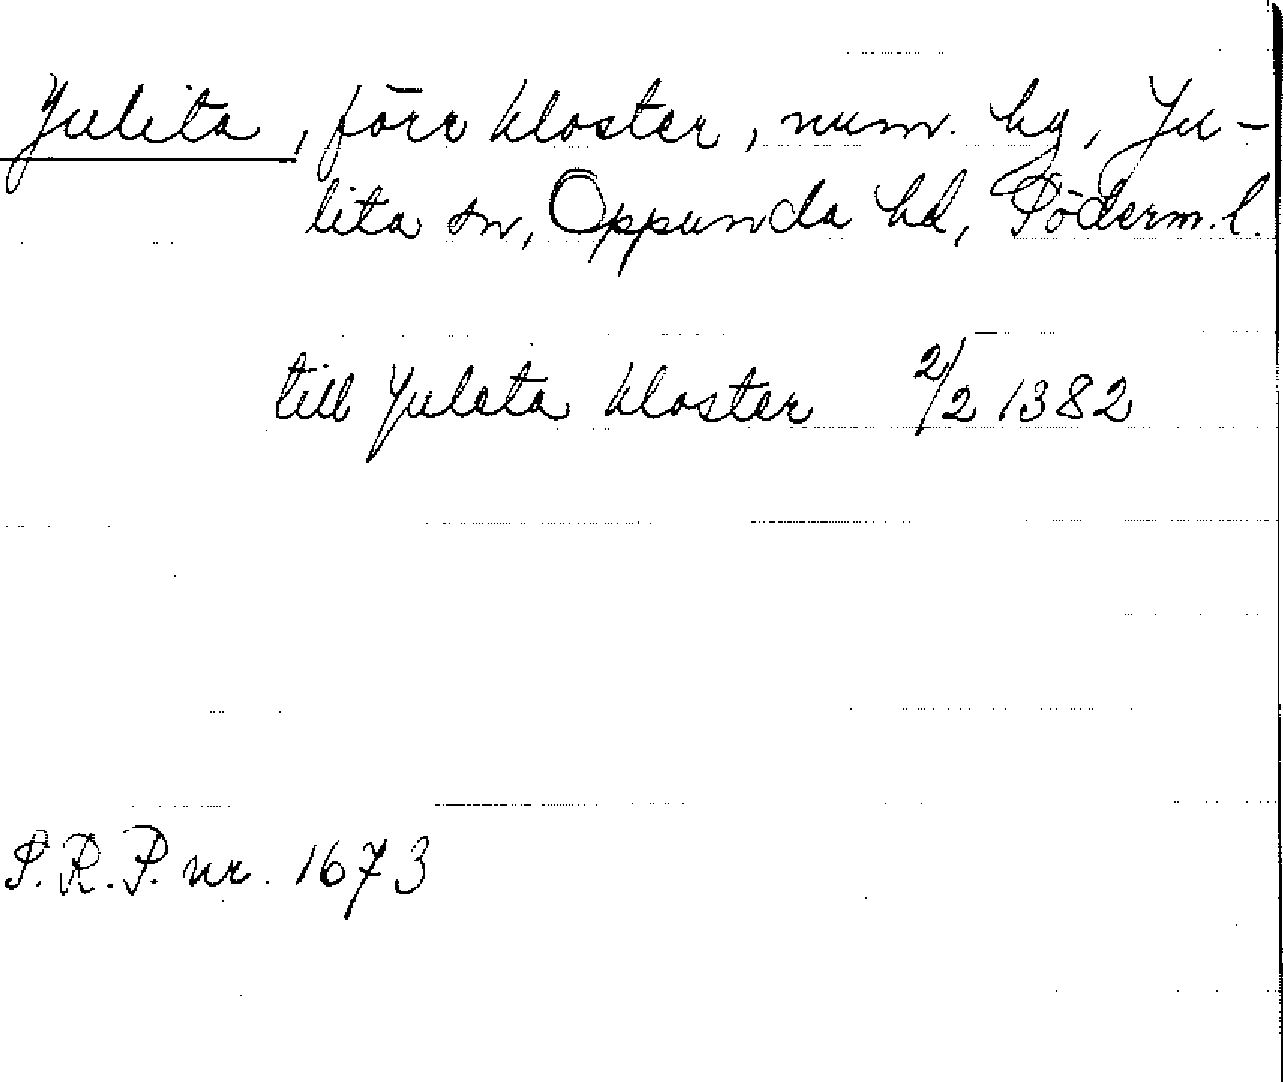 Julita, förr kloster, num. hg, Ju-
lita sn, Oppunda hd, Söderm.l.
till Juleta kloster 2/2 1382
S.R.P. nr. 1673